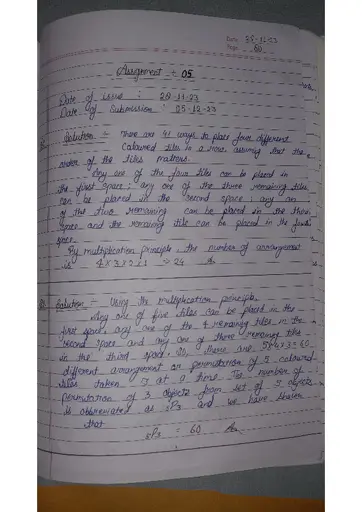 Date 05-12-23
Page 60
Assignment :- 05
Date of issue : 28-11-23
Date of Submission : 05-12-23
Solution :- There are 4! ways to place four different
Coloured tiles in a row, assuming that the
order of the tiles matters.
Any one of the four tiles can be placed in
the first space; any one of the three remaining tiles
can be placed in the second space; any on
of the two remaining can be placed in the third
space and the remaining tile can be placed in the
space.
By multiplication principle, the number of arrangement
is 4 x 3 x 2 x 1 = 24 Ans
Solution :- Using the multiplication principle,
Any one of five tiles can be placed in the
first space, any one of the 4 remaining tiles in the
second space and any one of three remaining tiles
in the third space. So, there are 5x4x3=60
different arrangement or permutation of 5 coloured
tiles taken 3 at a time. The number of
permutation of 3 objects from set of 5 objects
is abbreviated as 5P3 and we have shown
that
5P3 = 60 Ans